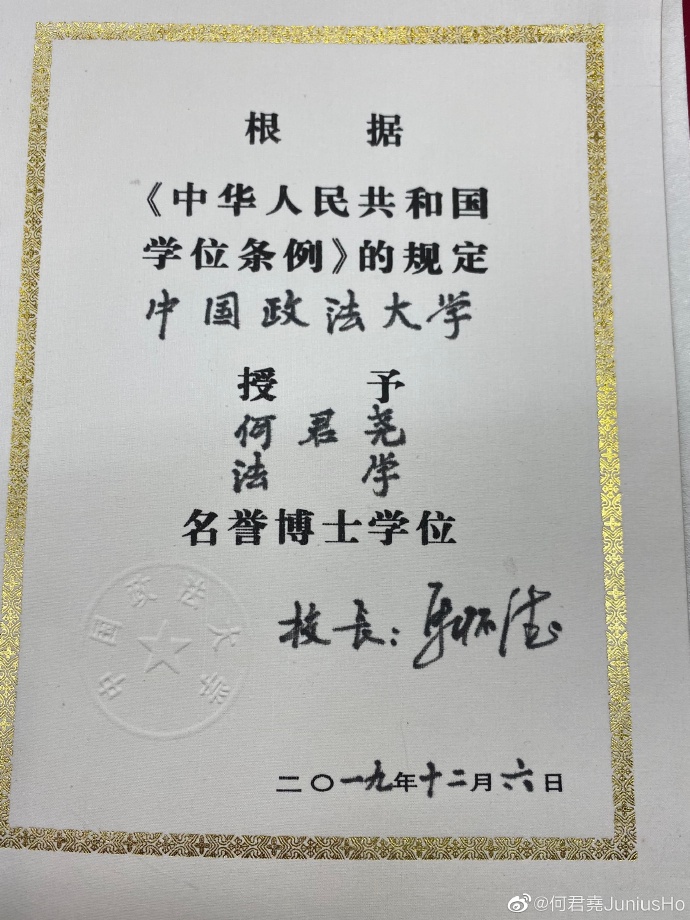 根据
《中华人民共和国
学位条例》的规定
中国政法大学
授予
何君尧
法学
名誉博士学位
校长：马怀德
二〇一九年十二月六日
中国政法大学
@何君堯JuniusHo